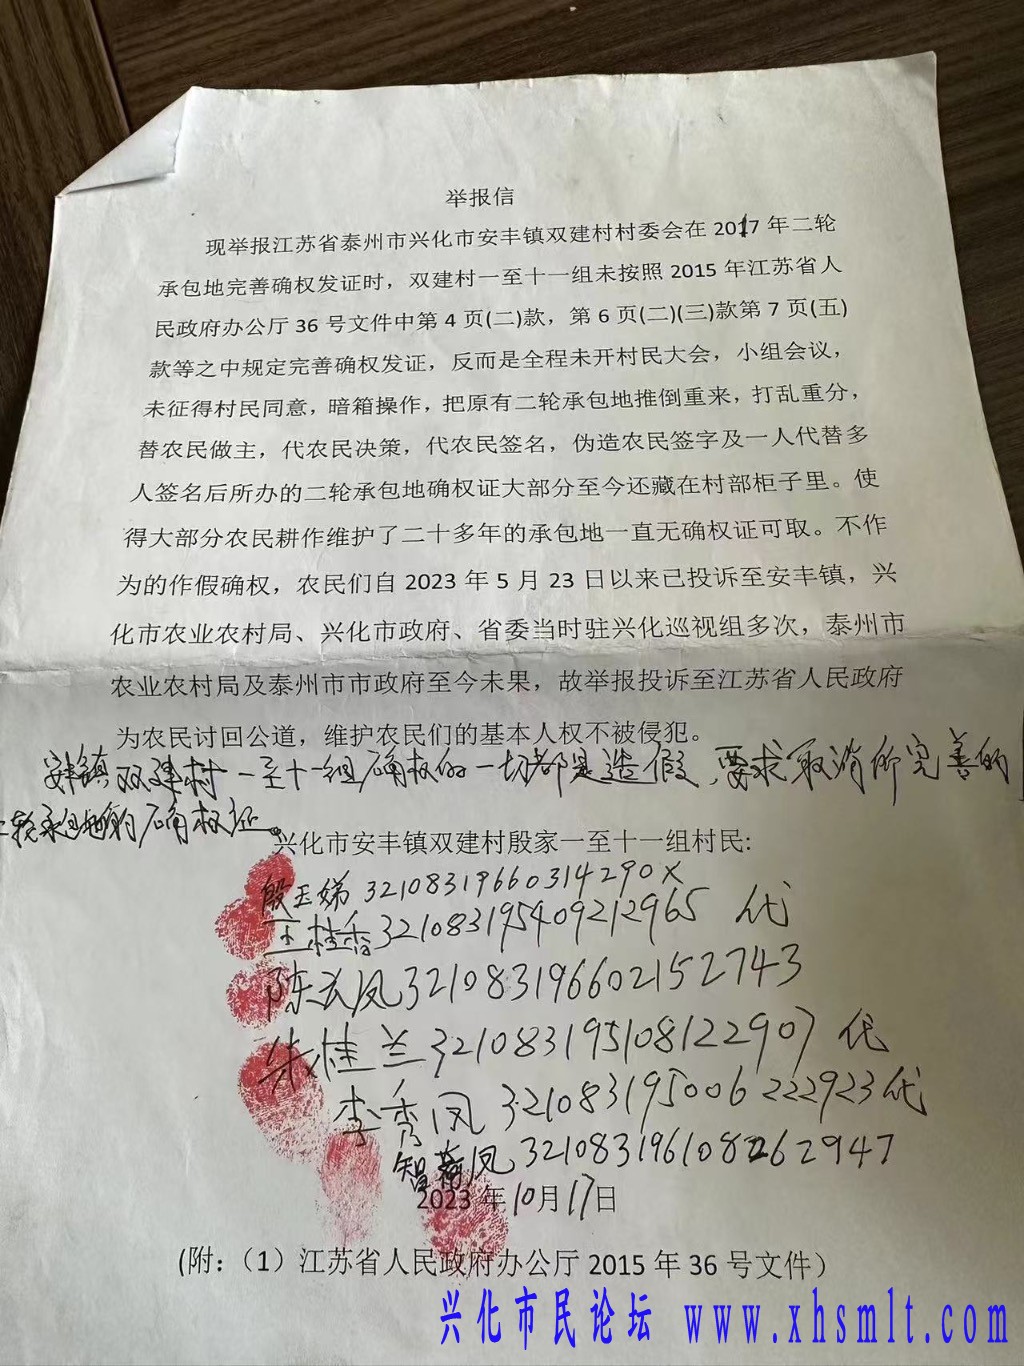 举报信
现举报江苏省泰州市兴化市安丰镇双建村村委会在 2017 年二轮
承包地完善确权发证时，双建村一至十一组未按照 2015 年江苏省人
民政府办公厅 36 号文件中第 4 页(二)款，第 6 页(二)(三)款第 7 页(五)
款等之中规定完善确权发证，反而是全程未开村民大会，小组会议，
未征得村民同意，暗箱操作，把原有二轮承包地推倒重来，打乱重分，
替农民做主，代农民决策，代农民签名，伪造农民签字及一人代替多
人签名后所办的二轮承包地确权证大部分至今还藏在村部柜子里。使
得大部分农民耕作维护了二十多年的承包地一直无确权证可取。不作
为的作假确权，农民们自 2023 年 5 月 23 日以来已投诉至安丰镇，兴
化市农业农村局、兴化市政府、省委当时驻兴化巡视组多次，泰州市
农业农村局及泰州市市政府至今未果，故举报投诉至江苏省人民政府
为农民讨回公道，维护农民们的基本人权不被侵犯。
安丰镇双建村一至十一组确权的一切都是造假，要求取消所完善的
二轮承包地的确权证。
兴化市安丰镇双建村殷家一至十一组村民:
殷玉娣 32108319660314290X
王桂香 321083195409212965 代
陈云凤 321083196602152743
朱桂兰 321083195108122907 代
李秀凤 321083195006222923 代
智凤 321083196108262947
2023 年 10 月 17 日
(附:（1）江苏省人民政府办公厅 2015 年 36 号文件）
兴化市民论坛 www.xhsmlt.com